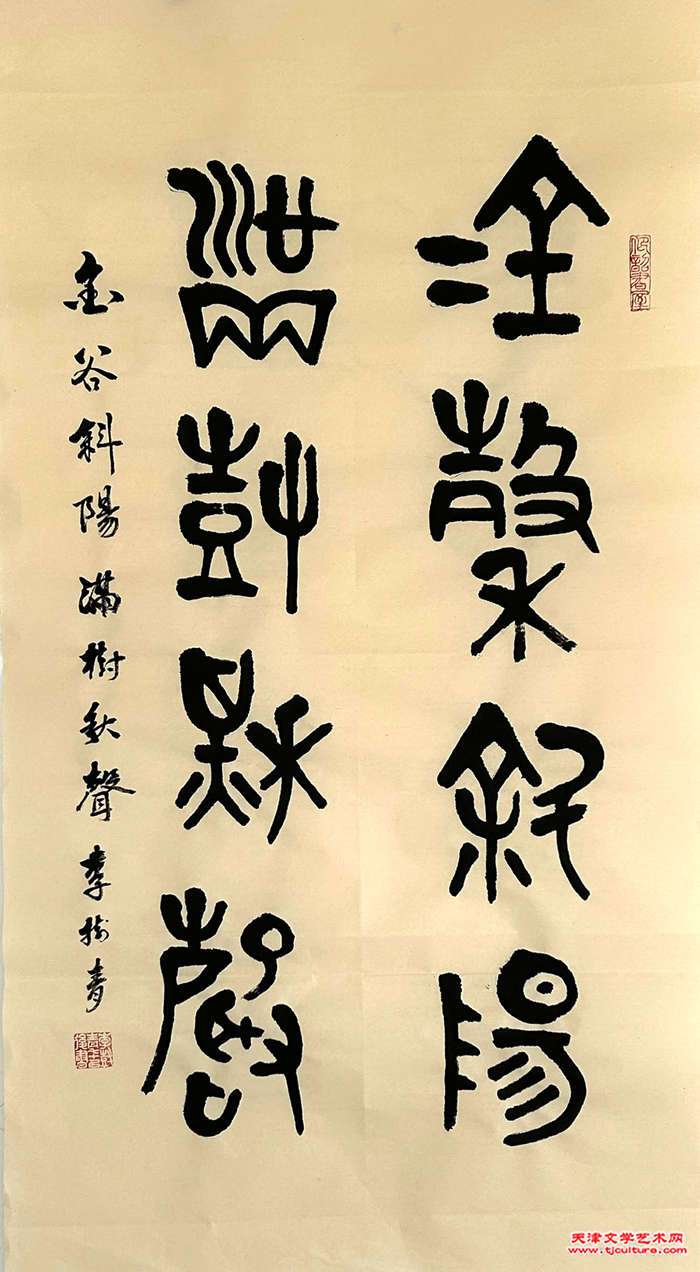 金穀斜陽
滿樹秋聲
金谷斜陽滿樹秋聲 李樹青
天津文学艺术网
www.tjculture.com